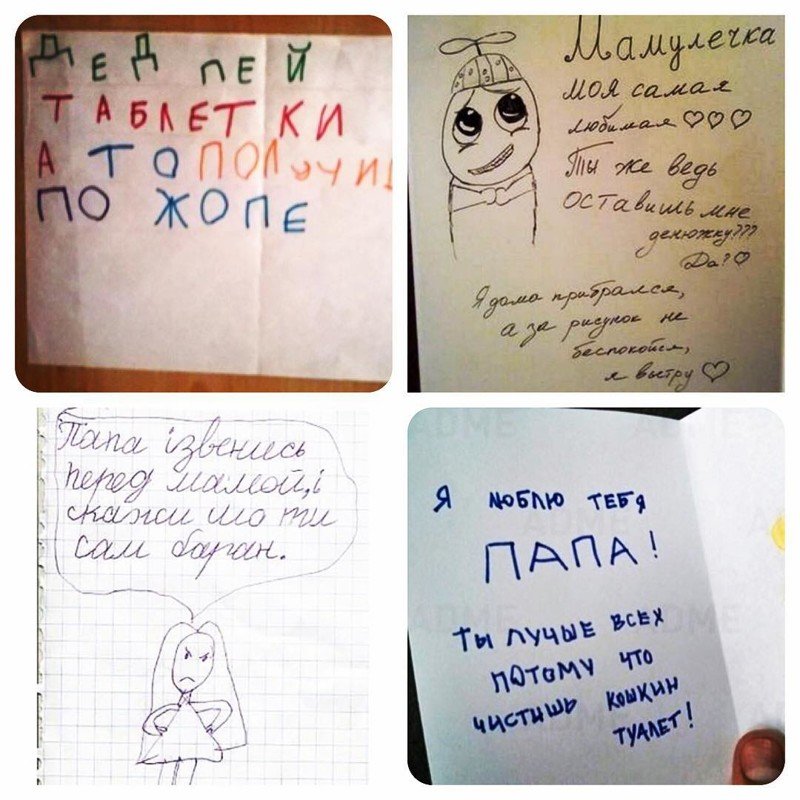 ДЕД ПЕЙ
ТАБЛЕТКИ
А ТО ПОЛУЧИШ
ПО ЖОПЕ
Мамулечка
моя самая
любимая ♡♡♡
Ты же ведь
оставишь мне
денюжку???
Да?♡
Я дома прибрался,
а за рисунок не
беспокойся,
я вытру ♡
Папа ізвенись
перед мамой, і
скажи шо ти
сам баран.
Я ЛЮБЛЮ ТЕБЯ
ПАПА!
ТЫ ЛУЧЫЕ ВСЕХ
ПОТОМУ ЧТО
ЧИСТИШЬ КОШКИН
ТУАЛЕТ!
ADME
ADME
ADME
ADME